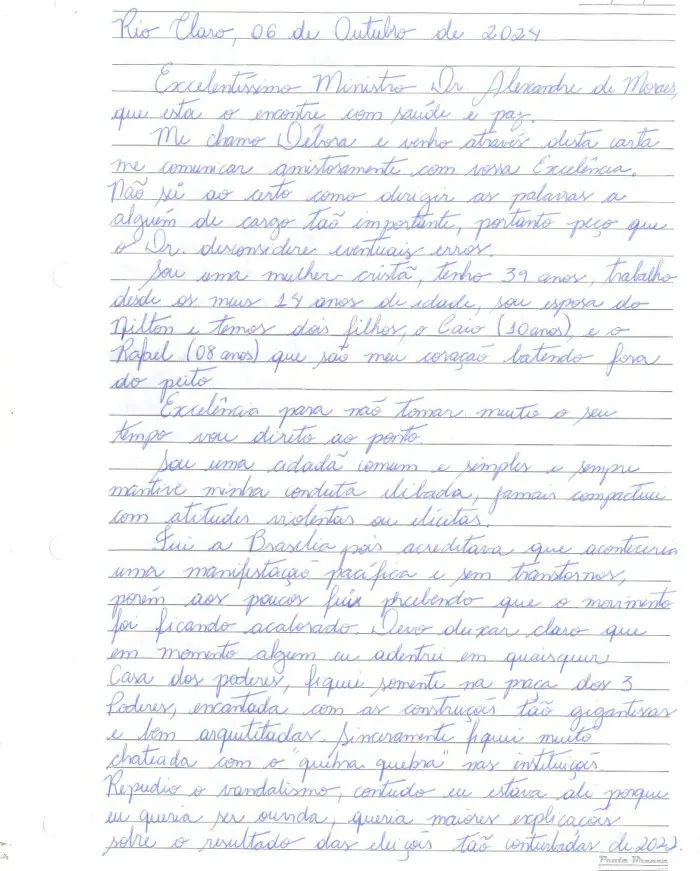 Rio Claro, 06 de Outubro de 2024
Excelentíssimo Ministro Dr. Alexandre de Moraes,
que esta o encontre com saúde e paz.
Me chamo Débora e venho através desta carta
me comunicar amistosamente com vossa Excelência.
Não sei ao certo como dirigir as palavras a
alguém de cargo taõ importante, portanto peço que
o Dr. desconsidere eventuais erros.
Sou uma mulher cristã, tenho 39 anos, trabalho
desde os meus 14 anos de idade, sou esposa do
Nilton e temos dois filhos, o Caio (10 anos), e o
Rafael (08 anos) que saõ meu coraçaõ batendo fora
do peito
Excelência para não tomar muito o seu
tempo vou direto ao ponto.
Sou uma cidadã comum e simples e sempre
mantive minha conduta ilibada, jamais compactuei
com atitudes violentas ou ilícitas.
Fui a Brasília pois acreditava que aconteceria
uma manifestaçaõ pacífica e sem transtornos,
porém aos poucos fui percebendo que o movimento
foi ficando acalorado. Devo deixar claro que
em momento algum eu adentrei em quaisquer
Casa dos poderes, fiquei somente na praça dos 3
Poderes, encantada com as construçoẽs taõ gigantescas
e bem arquitetadas. Sinceramente fiquei muito
chateada com o "quebra quebra" nas instituiçoẽs.
Repudio o vandalismo, contudo eu estava ali porque
eu queria ser ouvida, queria maiores explicaçoẽs
sobre o resultado das eleiçoẽs taõ conturbadas de 2022.
Ponto Branco